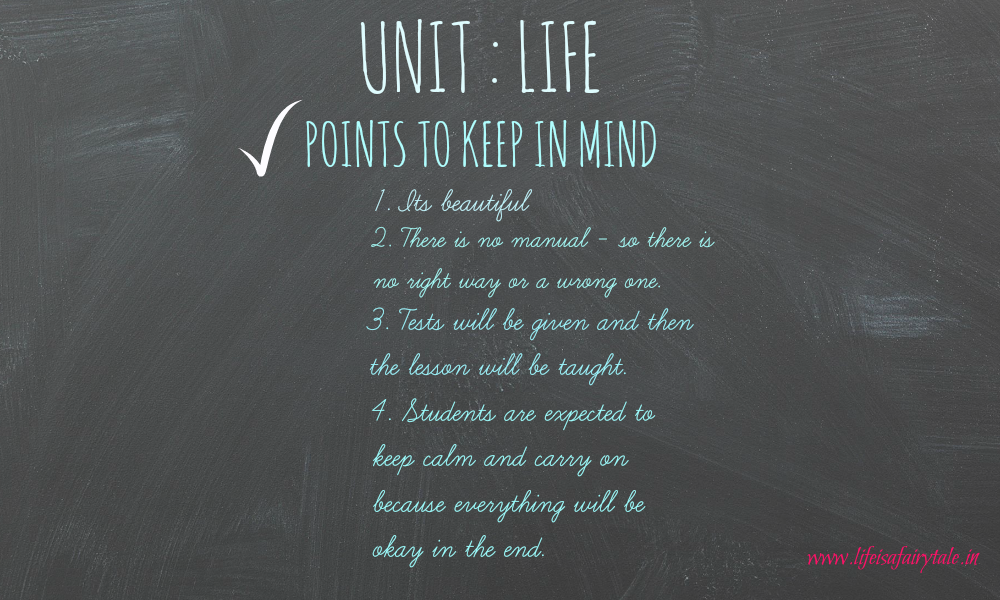 UNIT : LIFE
POINTS TO KEEP IN MIND
1. Its beautiful
2. There is no manual - so there is
no right way or a wrong one.
3. Tests will be given and then
the lesson will be taught.
4. Students are expected to
keep calm and carry on
because everything will be
okay in the end.
www.lifeisafairytale.in